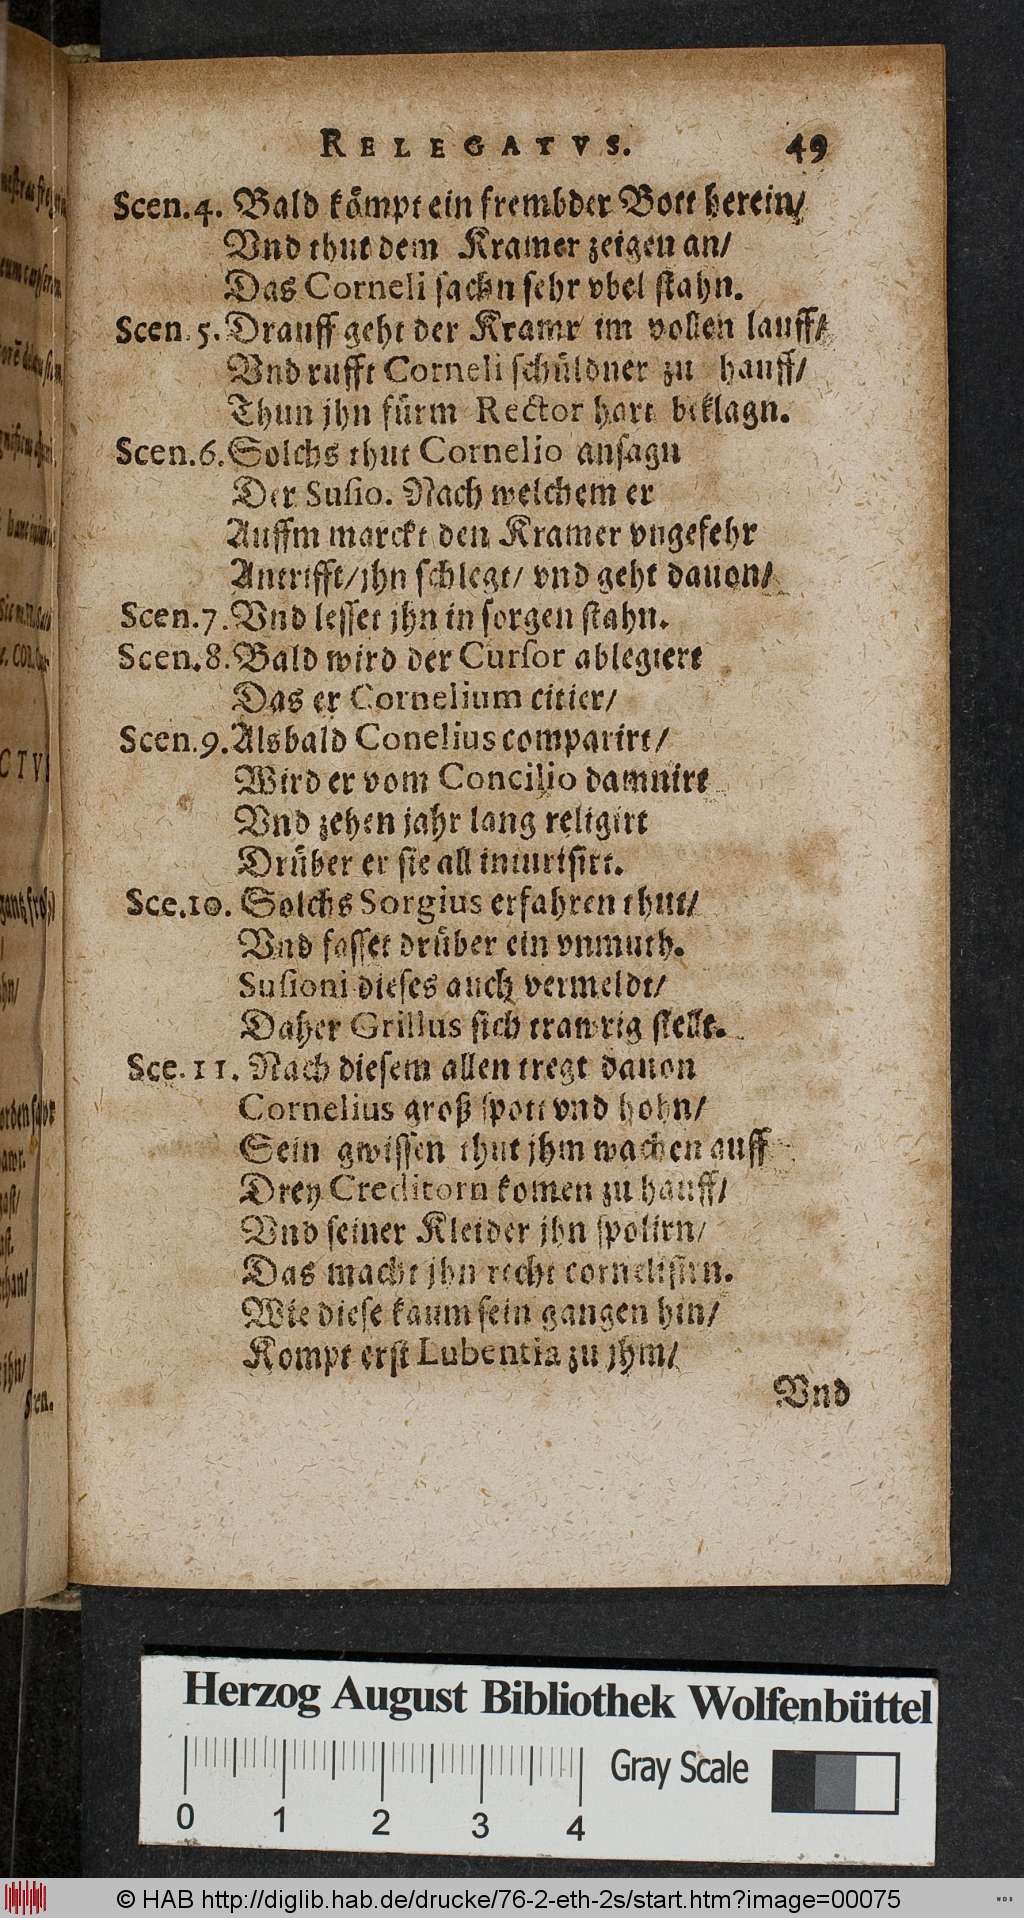 RELEGATVS. 49
Scen.4. Bald kömpt ein frembder Bott herein/
Vnd thut dem Kramer zeigen an/
Das Corneli sachn sehr vbel stahn.
Scen.5. Drauff geht der Kramr im vollen lauff/
Vnd rufft Corneli schüldner zu hauff/
Thun jhn fürm Rector hart beklagn.
Scen.6. Solchs thut Cornelio ansagn
Der Susio. Nach welchem er
Auffm marckt den Kramer vngefehr
Antrifft/jhn schlegt/ vnd geht dauon/
Scen.7. Vnd lesset jhn in sorgen stahn.
Scen.8. Bald wird der Cursor ablegiert
Das er Cornelium citier/
Scen.9. Alsbald Conelius comparirt/
Wird er vom Concilio damnirt
Vnd zehen jahr lang religirt
Drüber er sie all iniurisirt.
Sce.10. Solchs Sorgius erfahren thut/
Vnd fasset drüber ein vnmuth.
Susioni dieses auch vermeldt/
Daher Grillus sich trawrig stellt.
Sce.11. Nach diesem allen tregt dauon
Cornelius groß spott vnd hohn/
Sein gwissen thut jhm wachen auff
Drey Creditorn komen zu hauff/
Vnd seiner Kleider jhn spolirn/
Das macht jhn recht cornelisirn.
Wie diese kaum sein gangen hin/
Kompt erst Lubentia zu jhm/
Vnd
Herzog August Bibliothek Wolfenbüttel
Gray Scale
0 1 2 3 4
© HAB http://diglib.hab.de/drucke/76-2-eth-2s/start.htm?image=00075